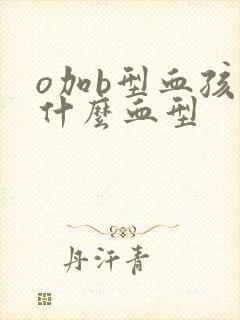 o加b型血孩
什麼血型
丹汗青